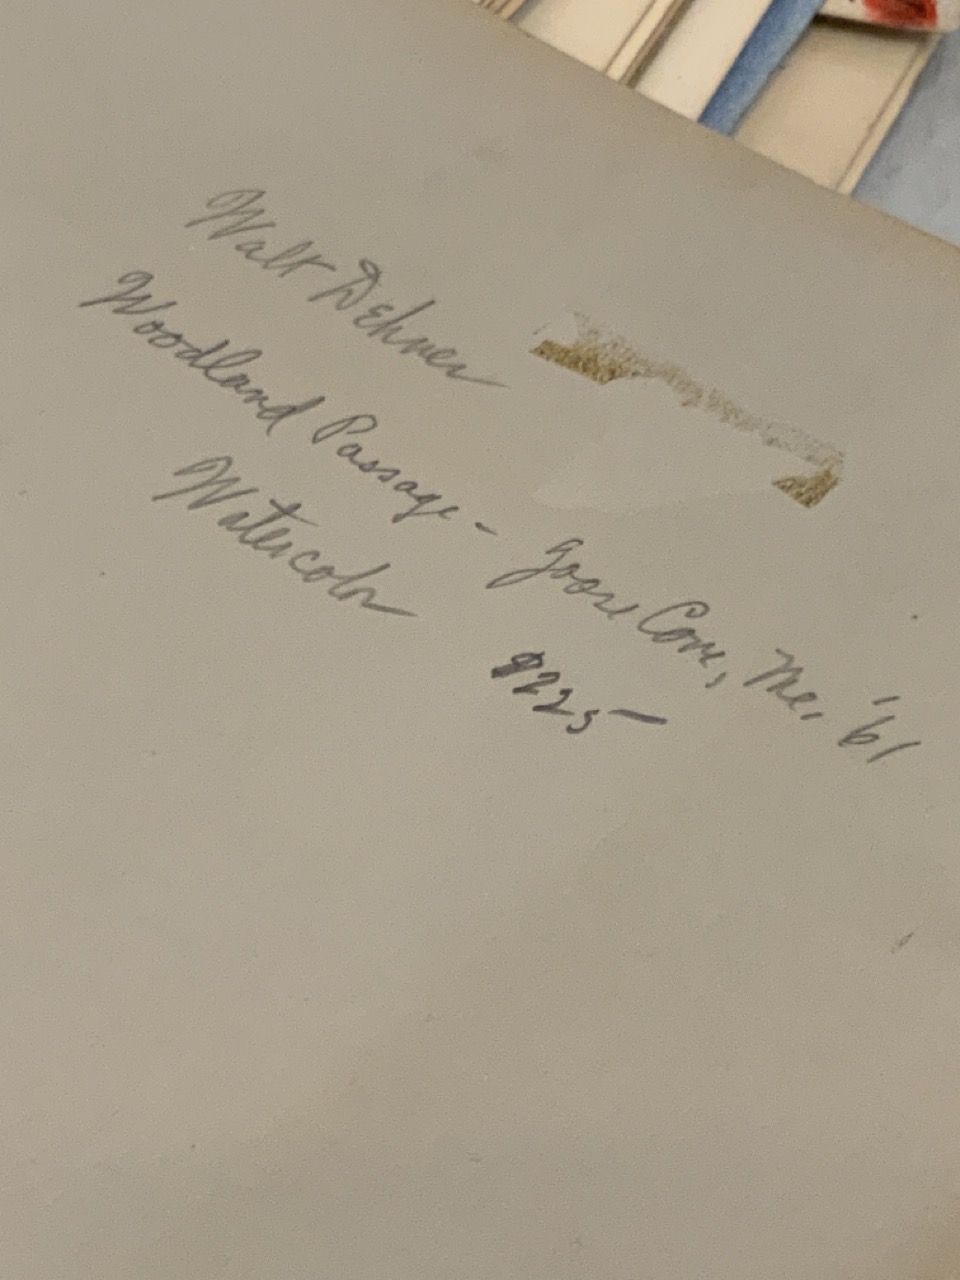 Walt Dehner
Woodland Passage - Goose Cove, Me. '61
Watercolor
$225—